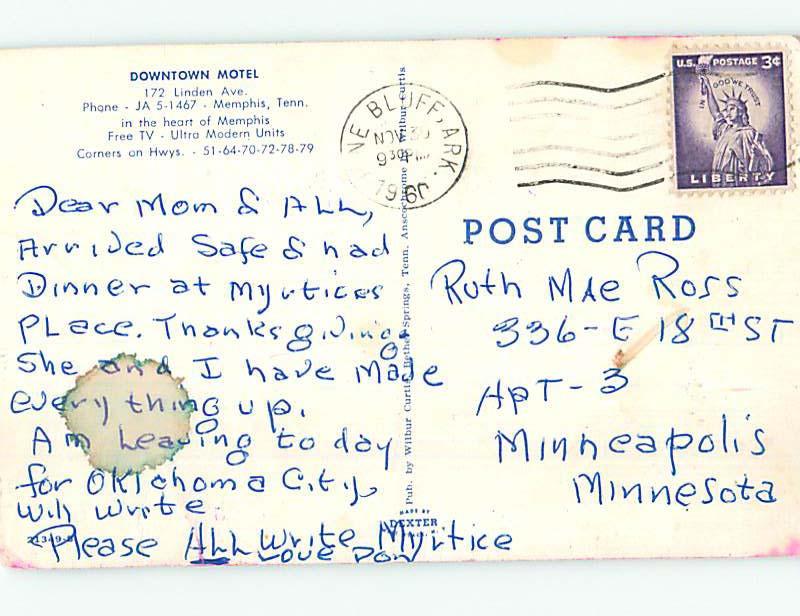 DOWNTOWN MOTEL
172 Linden Ave.
Phone - JA 5-1467 - Memphis, Tenn.
in the heart of Memphis
Free TV - Ultra Modern Units
Corners on Hwys. - 51-64-70-72-78-79
Dear Mom & ALL,
Arrived Safe & had
Dinner at Myrtices
PLace. Thanksgiving.
She and I have made
every thing up.
Am Leaving to day
for OKlahoma City,
will write.
Please ALL write Myrtice
Love Don
21349-B
Pub. by Wilbur Curtis, Bethel Springs, Tenn. Anscochrome by Wilbur Curtis
MADE BY
DEXTER
NE BLUFF, ARK.
NOV 30
9 30 PM
1960
U.S. POSTAGE 3¢
IN GOD WE TRUST
LIBERTY
POST CARD
Ruth MAe Ross
336-E 18TH ST
APT-3
Minneapolis
Minnesota